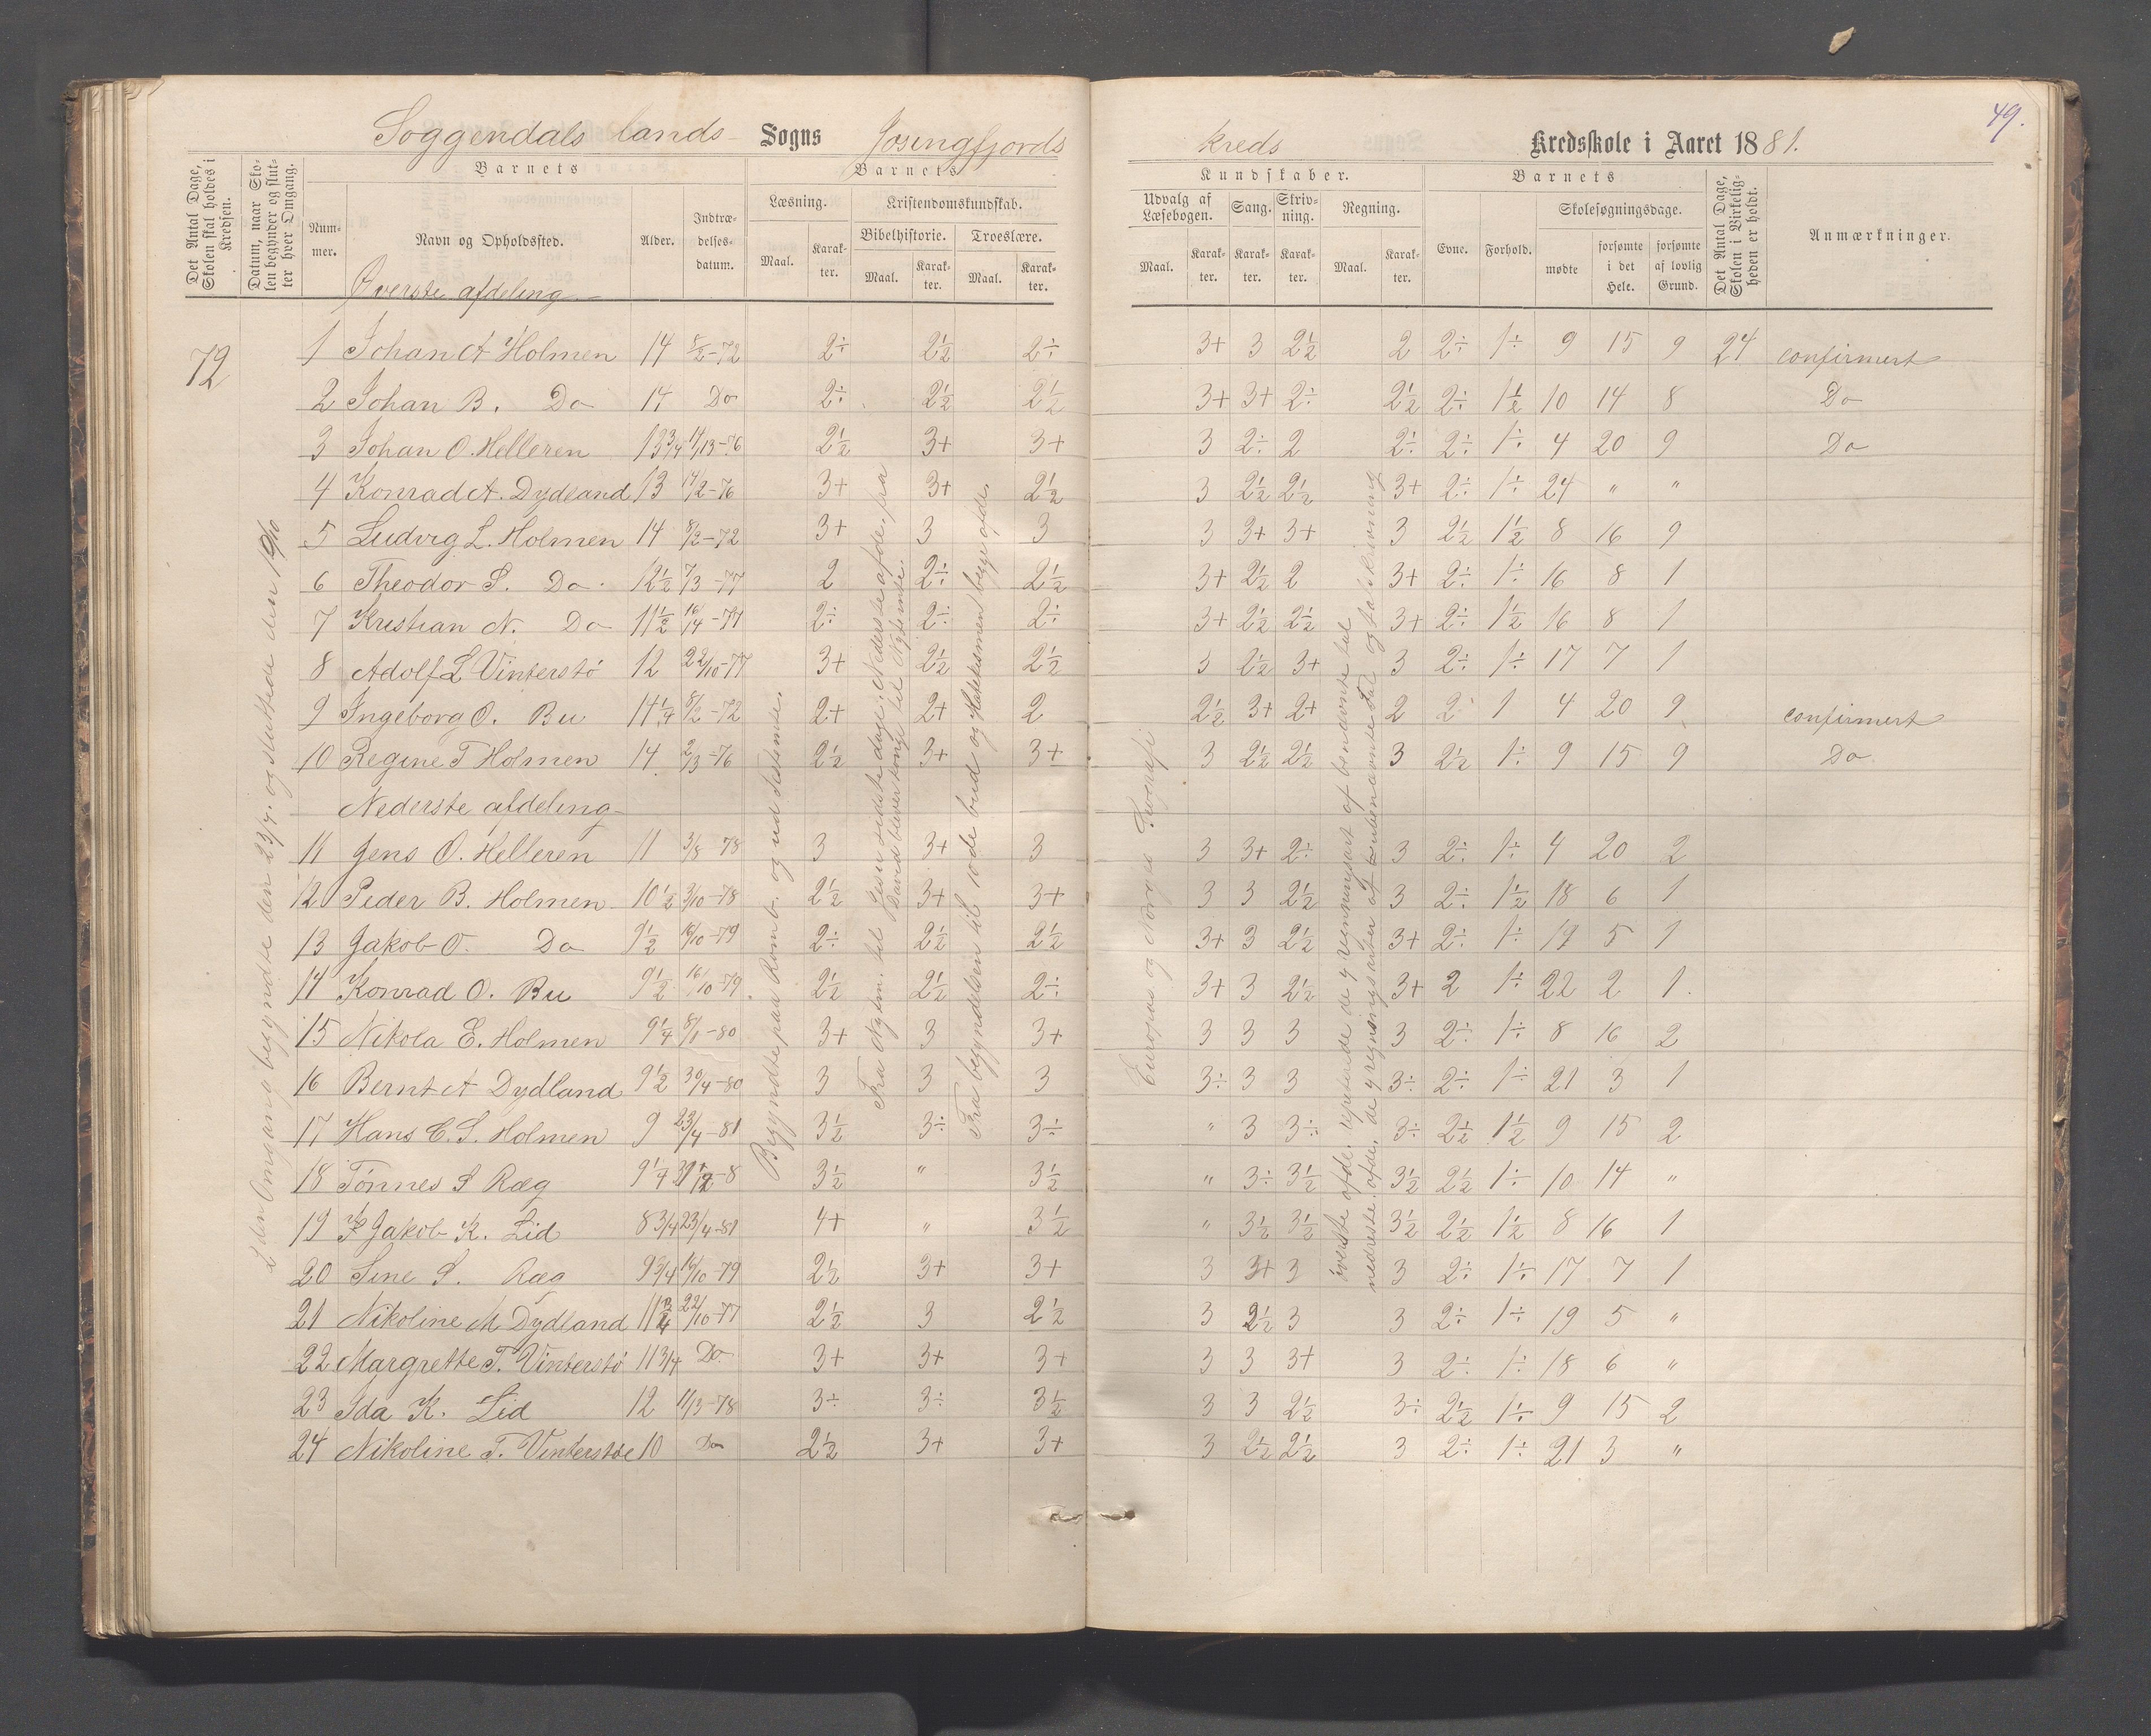 Soggendals lands Sogns Josingfjords kreds Kredsskole i Aaret 1881.
49.
Det Antal Dage, Skolen skal holdes i Kredsen.
Datum, naar Skolen begynder og slutter hver Omgang.
Barnets
Nummer.
Navn og Opholdssted.
Alder.
Indtrædelsesdatum.
Barnets
Læsning.
Maal.
Karakter.
Kristendomskundskab.
Bibelhistorie.
Maal.
Karakter.
Troeslære.
Maal.
Karakter.
Kundskaber.
Udvalg af Læsebogen.
Maal.
Karakter.
Sang.
Karakter.
Skrivning.
Karakter.
Regning.
Maal.
Karakter.
Barnets
Evne.
Forhold.
Skolesøgningsdage.
mødte
forsømte i det Hele.
forsømte af lovlig Grund.
Det Antal Dage, Skolen i Virkeligheden er holdt.
Anmærkninger.
Øverste afdeling
72
1 Johan A Holmen 14 8/2-72 2÷ 2½ 2÷ 3+ 3 2½ 2 2÷ 1÷ 9 15 9 24 confirmert
2 Johan B. Do 14 Do 2÷ 2½ 2½ 3+ 3+ 2÷ 2½ 2÷ 1½ 10 14 8 Do
3 Johan O. Helleren 13 3/4 14/13-76 2½ 3+ 3+ 3 2÷ 2 2÷ 2÷ 1÷ 4 20 9 Do
4 Konrad A. Dydland 13 14/2-76 3+ 3+ 2½ 3 2½ 2½ 3+ 2÷ 1÷ 24 " "
5 Ludvig L. Holmen 14 8/2-72 3+ 3 3 3 3+ 3+ 3 2½ 1½ 8 16 9
6 Theodor S. Do 12½ 7/3-77 2 2÷ 2½ 3+ 2½ 2 3+ 2÷ 1÷ 16 8 1
7 Kristian N. Do 11½ 16/14-77 2÷ 2÷ 2÷ 3+ 2½ 2½ 3+ 2÷ 1½ 16 8 1
8 Adolf L Vinterstö 12 22/10-77 3+ 2½ 2½ 3 2½ 3+ 3 2÷ 1÷ 17 7 1
9 Ingeborg O. Bu 14¼ 8/2-72 2+ 2+ 2 2½ 3+ 2+ 2 2÷ 1 4 20 9 confirmert
10 Regine T Holmen 14 2/3-76 2½ 3+ 3+ 3 2½ 2½ 3 2½ 1÷ 9 15 9 Do
Nederste afdeling
11 Jens O. Helleren 11 3/8 78 3 3+ 3 3 3+ 2÷ 3 2÷ 1÷ 4 20 2
12 Peder B. Holmen 10½ 3/10-78 2½ 3+ 3+ 3 3 2½ 3 2÷ 1½ 18 6 1
13 Jakob O. Do 9½ 16/10-79 2÷ 2½ 2½ 3+ 3 2½ 3+ 2÷ 1÷ 19 5 1
14 Konrad O. Bu 9½ 16/10-79 2½ 2½ 2÷ 3+ 3 2½ 3+ 2 1÷ 22 2 1.
15 Nikola E. Holmen 9¼ 8/1-80 3+ 3 3+ 3 3 3 3 2÷ 1÷ 8 16 2
16 Bernt A Dydland 9½ 30/4-80 3 3 3 3÷ 3 3 3÷ 2÷ 1÷ 21 3 1
17 Hans C. S. Holmen 9 23/4-81 3½ 3÷ 3÷ " 3 3÷ 3÷ 2½ 1½ 9 15 2
18 Tönnes S Ræg 9¼ 31/12-8 3½ " 3½ " 3÷ 3½ 3½ 2½ 1÷ 10 14 "
19 Jakob K. Lid 8 3/4 23/4-81 4+ " 3½ " 3½ 3½ 3½ 2½ 1½ 8 16 1
20 Sine S. Ræg 9 3/4 16/10-79 2½ 3+ 3+ 3 3+ 3 3 2÷ 1÷ 17 7 1
21 Nikoline M Dydland 11 3/4 22/10-77 2½ 3 2½ 3 2½ 3 3 2÷ 1÷ 19 5 "
22 Margrette T. Vinterstö 11 3/4 Do. 3+ 3+ 3+ 3 3 3+ 3 2÷ 1÷ 18 6 "
23 Ida K. Lid 12 11/13-78 3÷ 3÷ 3½ 3 3 2½ 3÷ 2½ 1÷ 9 15 2
24 Nikoline T. Vinterstöe 10 Do 2½ 3+ 3+ 3 2½ 2½ 3 2÷ 1÷ 21 3 "
den Omgang begyndte den 23/4. og sluttede den 19/10
Begyndte paa Romb. og ud Testemte.
Fra Nytm. til Jesu sidste dage. Nederste afde. fra
David til Nytmte.
Fra begyndelsen til 10de bud og begge afde.
Europas og Norges Geografi
överste afde. repeterede de 4 regningsart af benævnte tal
nederste afde. de 4 regningsarter af ubenævnte tal og talskrivning